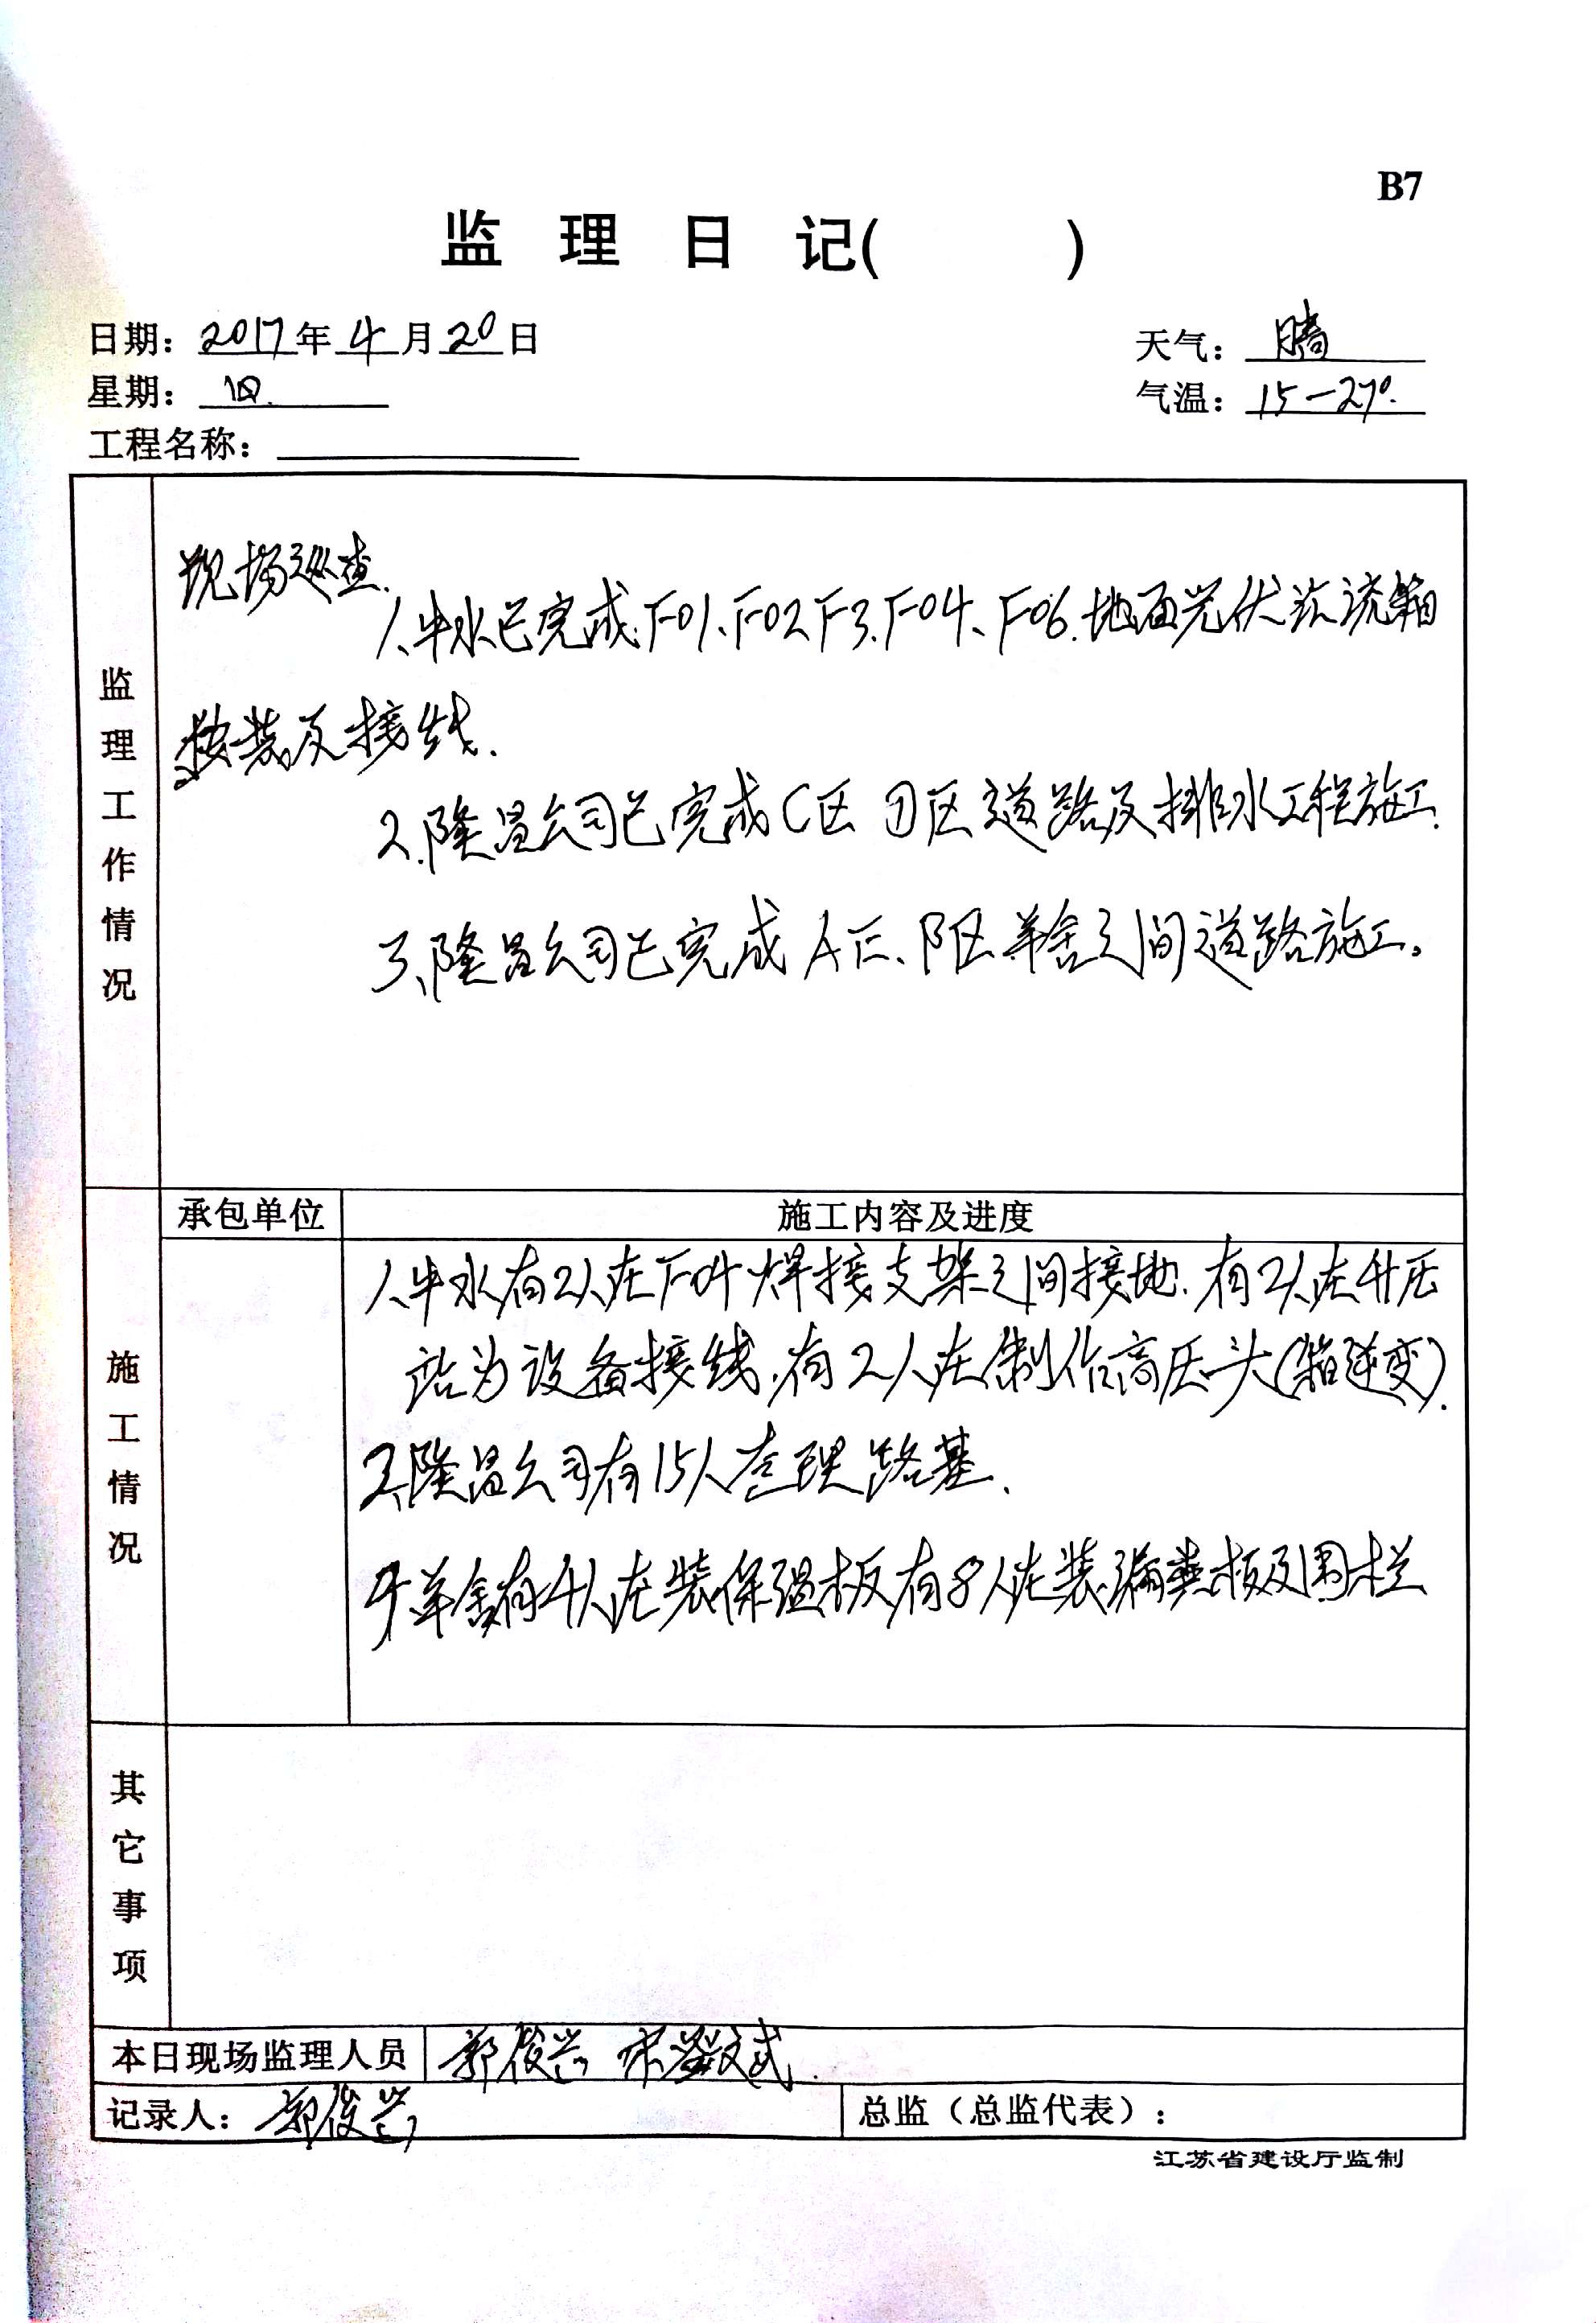 B7
监理日记(　　)
日期：2017年4月20日
天气：晴
星期：四.
气温：15-27°.
工程名称：
监理工作情况
现场巡查.
1、中水已完成F01、F02 F3、F04、F06.地面光伏汇流箱
按装及接线.
2、隆昌公司已完成C区 D区道路及排水工程施工.
3、隆昌公司已完成A区、B区羊舍之间道路施工。
施工情况
承包单位
施工内容及进度
1、中水有2人在F04焊接支架之间接地.有2人在升压
站为设备接线,有2人在制作高压头(箱逆变).
2、隆昌公司有15人在理路基.
羊舍有4人在装保温板有8人在装漏粪板及围栏
其它事项
本日现场监理人员
郭俊兰
记录人：郭俊兰
总监（总监代表）：
江苏省建设厅监制